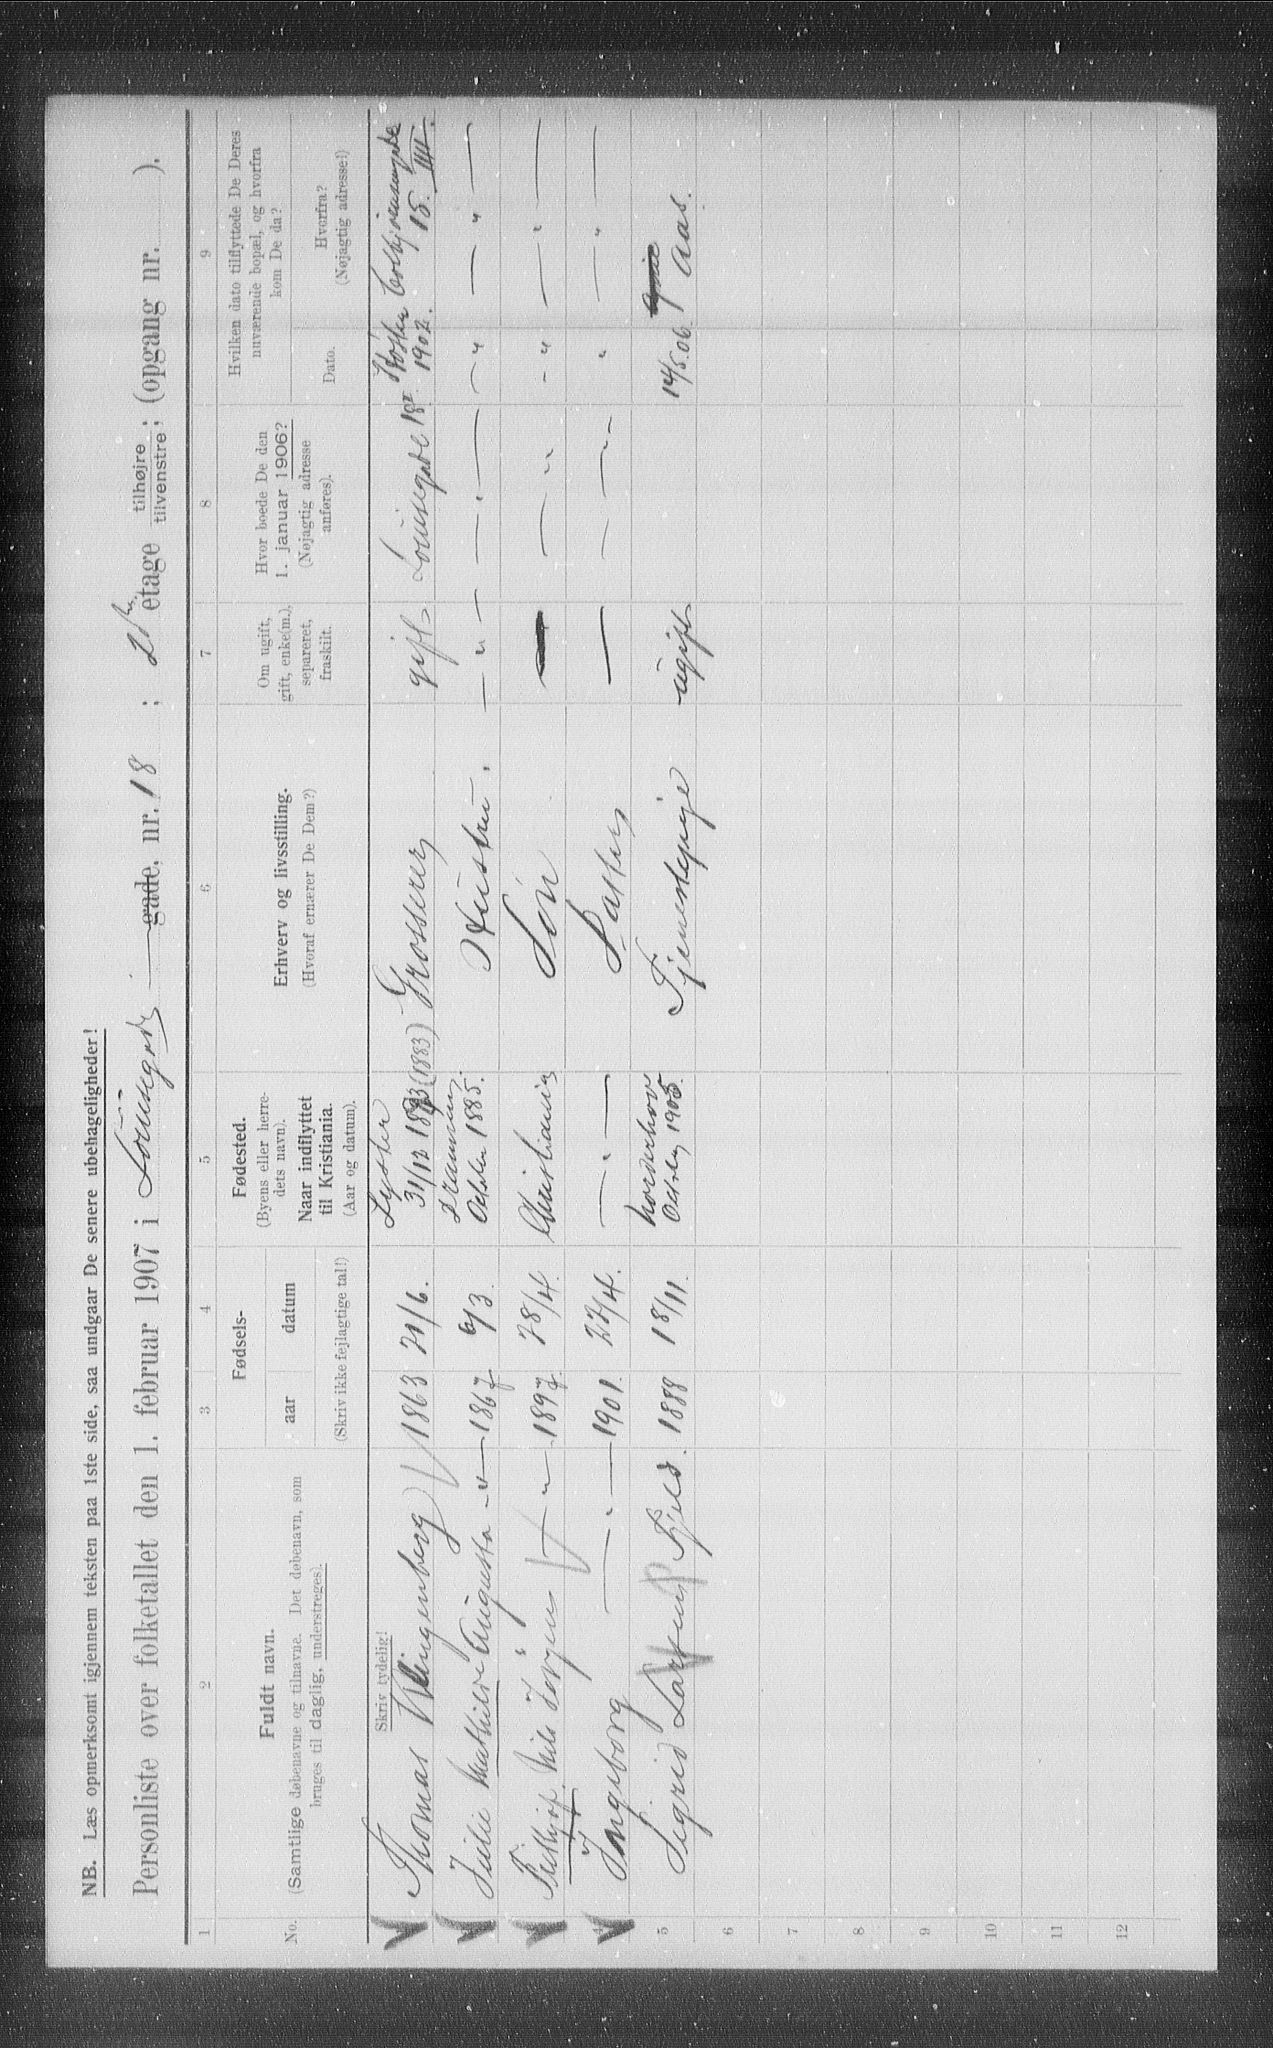 NB. Læs opmerksomt igjennem teksten paa 1ste side, saa undgaar De senere ubehageligheder!
Personliste over folketallet den 1. februar 1907 i Louisegade gade, nr. 18 ; 2den etage tilhøjre / tilvenstre; (opgang nr. ).
1 2 3 4 5 6 7 8 9
No.
Fuldt navn.
(Samtlige døbenavne og tilnavne. Det døbenavn, som
bruges til daglig, understreges).
Fødsels-
aar datum
(Skriv ikke fejlagtige tal!)
Fødested.
(Byens eller herre-
dets navn).
Naar indflyttet
til Kristiania.
(Aar og datum).
Erhverv og livsstilling.
(Hvoraf ernærer De Dem?)
Om ugift,
gift, enke(m.),
separeret,
fraskilt.
Hvor boede De den
1. januar 1906?
(Nøjagtig adresse
anføres).
Hvilken dato tilflyttede De Deres
nuværende bopæl, og hvorfra
kom De da?
Dato.
Hvorfra?
(Nøjagtig adresse!)
Skriv tydelig!
Thomas Klingenberg 1863 21/6. Lyster 31/12 1883 (1883) Grosserer gift Louisegade 18 Høsten 1902. Colbjørnsensgade 15. III.
Julie Mathilde Augusta -"- 1867 6/3. Drammen October 1885. Hustru. - " - - " - - " - - " -
Fridtjof Nils Jörgen - " - 1897. 28/4. Christiania Sön - " - - " - - " -
4 Ingeborg - " - 1901. 27/4. - " - Datter — - " - " - " -
5 Sigrid Larsen Fjeld. 1888 18/11. Norderhov October 1905. Tjenestepige ugift 14/5.06. Aas.
6
7
8
9
10
11
12